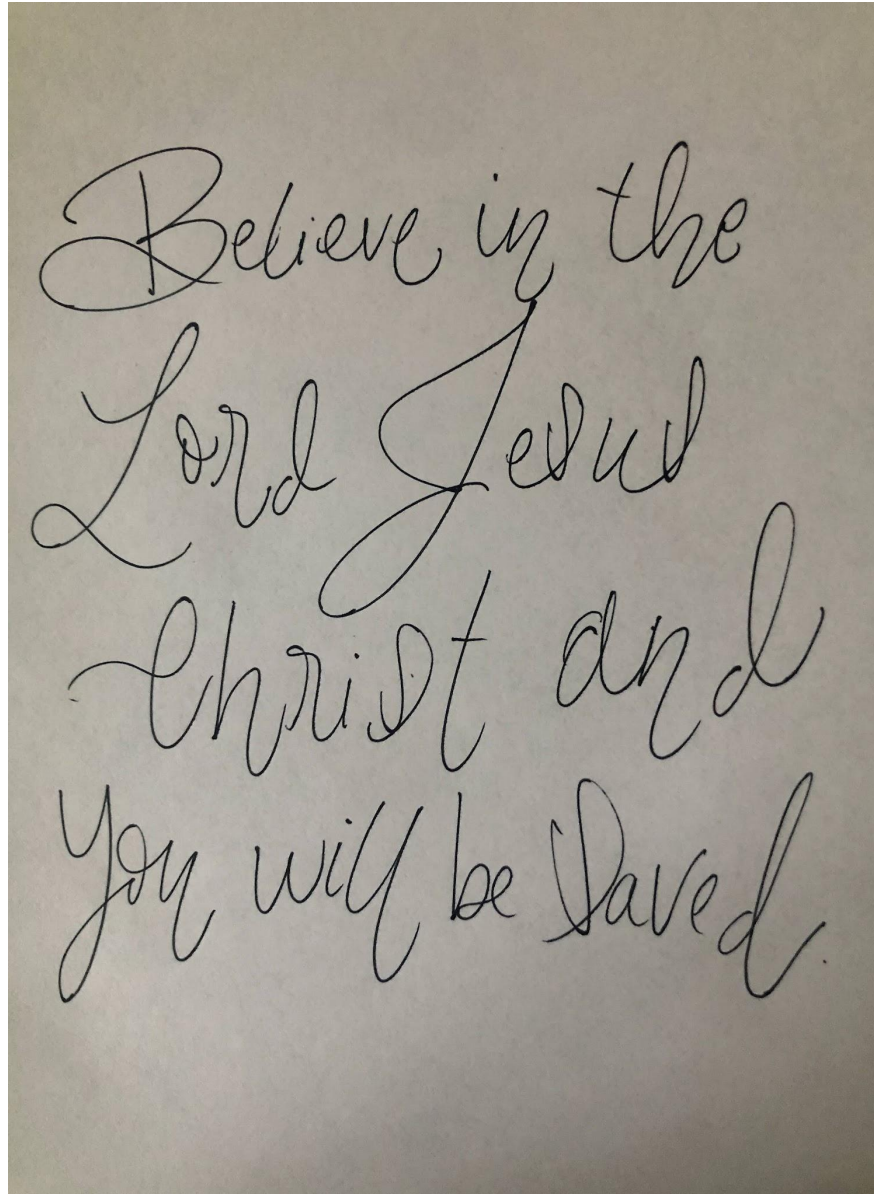 Believe in the
Lord Jesus
Christ and
you will be Saved.